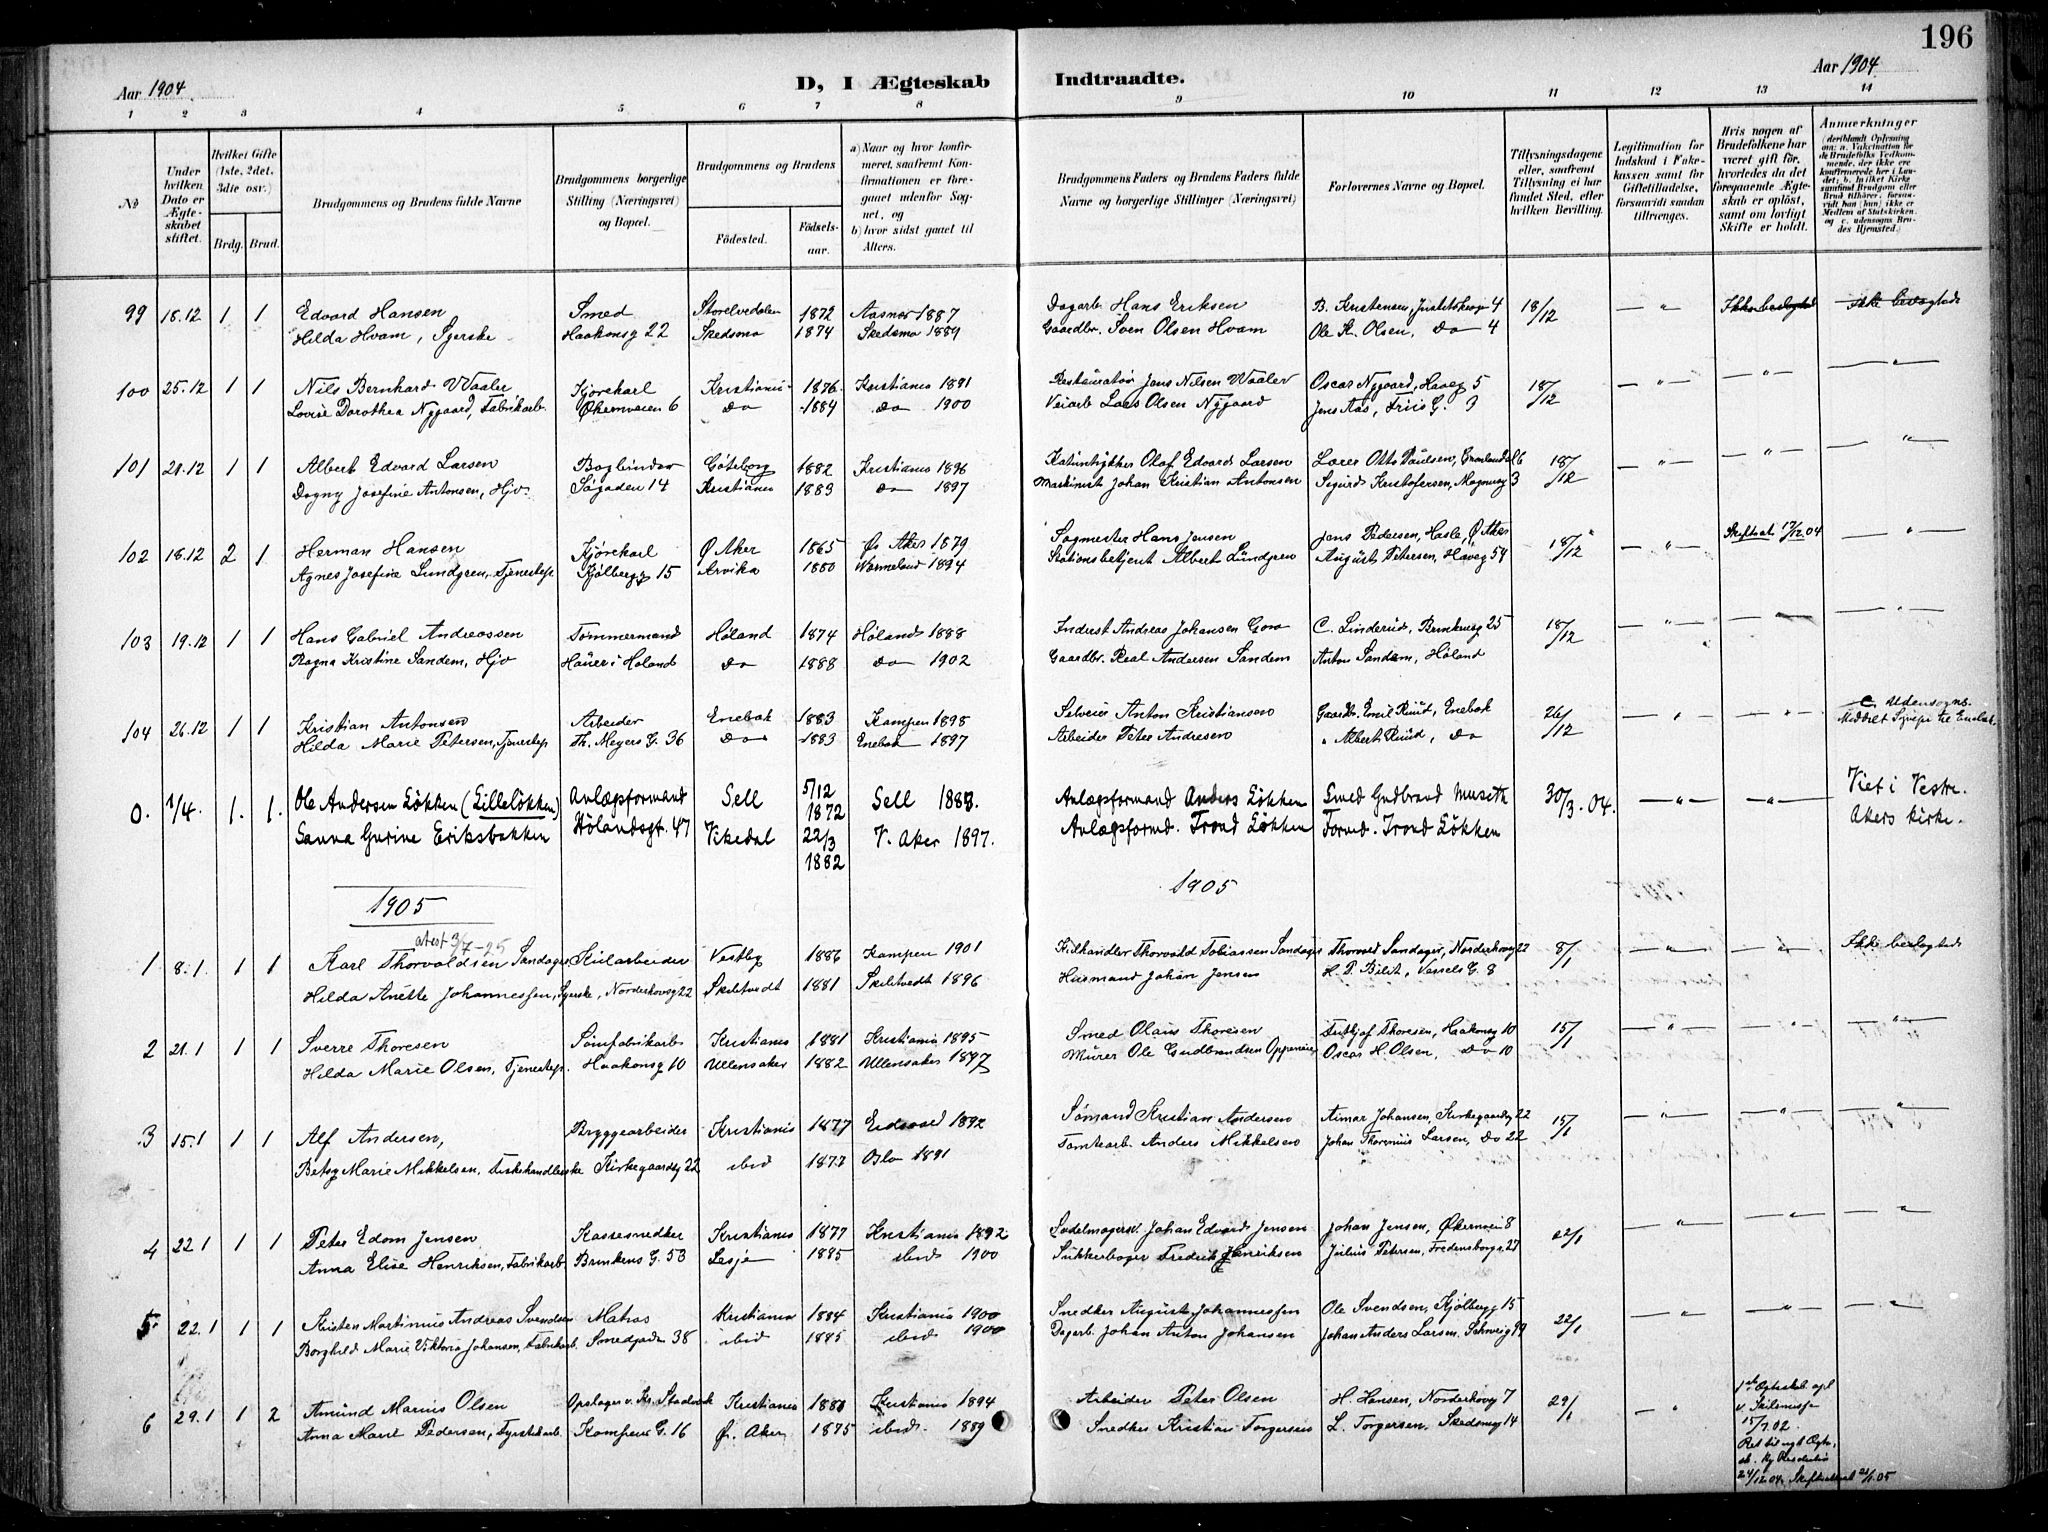 196
Aar 1904
D, I Ægteskab Indtraadte.
Aar 1904
1 2 3 4 5 6 7 8 9 10 11 12 13 14
No
Under hvilken Dato er Ægteskabet stiftet.
Hvilket Gifte (1ste, 2det, 3die osv.)
Brdg. Brud.
Brudgommens og Brudens fulde Navne
Brudgommens borgerlige Stilling (Næringsvei) og Bopæl.
Brudgommens og Brudens
Födested. Födselsaar.
a) Naar og hvor konfirmeret, saafremt Konfirmationen er foregaaet udenfor Sognet, og
b) hvor sidst gaaet til Alters.
Brudgommens Faders og Brudens Faders fulde Navne og borgerlige Stillinger (Næringsvei)
Forlovernes Navne og Bopæl.
Tillysningsdagene eller, saafremt Tillysning ei har fundet Sted, efter hvilken Bevilling.
Legitimation for Indskud i Enkekassen samt for Giftetilladelse, forsaavidt saadan tiltrænges.
Hvis nogen af Brudefolkene har været gift för, hvorledes da det foregaaende Ægteskab er oplöst, samt om lovligt Skifte er holdt.
Anmerkninger
99 18.12 1 1 Edvard Hansen Smed Storelvedalen 1872 Aasnes 1887 Dagarb. Hans Eriksen B. Kristensen, 4 18/12 — " — Ikke beslegtede
Hilda Hvam, Syerske Haakonsg 22 Skedsmo 1874 Skedsmo 1889 Gaardbr. Sven Olsen Hvam Ole K. Olsen, do 4
100 25.12 1 1 Nils Bernhard Waaler Kjørekarl Kristiania 1876 Kristiania 1891 Restauratør Jens Nilsen Waaler Oscar Nygaard, Haveg 5 18/12 — " — — " — — " —
Lovise Dorothea Nygaard, Fabrikarb. Økernveien 6 do 1884 do 1900 Veiarb Lars Olsen Nygaard Jens Aas, Friis G. 3
101 21.12 1 1 Albert Edvard Larsen Bogbinder Göteborg 1882 Kristiania 1896 Olaf Edvard Larsen Lærer Otto Paulsen, 6 18/12 — " — — " — — " —
Dagny Josefine Antonsen, Hjv. Søgaden 14 Kristiania 1883 do 1897 Maskinist Johan Kristian Antonsen Sigurd Kristofersen, 3
102 18.12 2 1 Herman Hansen Kjørekarl Ø Aker 1865 Ø. Aker 1879 Sagmester Hans Jensen Jens Pedersen, Hasle, Ø Aker 18/12 — " — Skifteat. 17/12.04 — " —
Agnes Josefine Lundgren, Tjenestep. Kjølbergg 15 Arvika 1880 Wermeland 1894 Stationsbetjent Albert Lundgren August Petersen, Haveg 54
103 19.12 1 1 Hans Gabriel Andreassen Tømmermand Høland 1874 Høland 1888 Inderst Andreas Johansen C. Linderud, 25 18/12 — " — — " — — " —
Ragna Kristine Sandem, Hjv i Høland do 1888 do 1902 Gaardbr. Andersen Sandem Anton Sandem, Høland
104 26.12 1 1 Kristian Antonsen Arbeider Enebak 1883 Kampen 1898 Selveier Anton Kristiansen Gaardbr. Emil Ruud, Enebak 26/12 — " — — " — c. Udensogns.
Hilda Marie Petersen, Tjenestep Th. Meyers G. 36 do 1883 Enebak 1897 Arbeider Peter Andresen " Albert Ruud, do
0. 1/4. 1. 1. Ole Andersen Løkken (Lilleløkken) Anlægsformand Sell 5/12 1872 Sell 1887. Anlægsformand Anders Løkken Smed Gudbrand Museth 30/3.04. — " — — " — Viet i Vestre
Sanna Gurine Eriksbakken Hølandsgt. 47 Vikedal 22/3 1882 V. Aker 1897. Anlægsformd. Trond Løkken Formd. Trond Løkken Akers kirke.
1905 1905
atest 3/7-25
1 8.1 1 1 Karl Thorvaldsen Sandager, Kularbeider Vestby 1886 Kampen 1901 Kulhandler Thorvald Tobiassen Sandager Thorvald Sandager, Norderhovsg 22 8/1 — " — — " — Ikke beslegtede
Hilda Anette Johannessen, Syerske, Norderhovsg 22 Skibtvedt 1881 Skibtvedt 1896 Husmand Johan Jensen H. P. , Vessels G. 8
2 21.1 1 1 Sverre Thoresen Sømfabrikarb Kristiania 1881 Kristiania 1895 Smed Olaus Thoresen Fritjof Thoresen, Haakonsg 10 15/1 — " — — " — — " —
Hilda Marie Olsen, Tjenestep. Haakonsg 10 Ullensaker 1882 Ullensaker 1897 Murer Ole Gudbrandsen Oscar H. Olsen, do 10
3 15.1 1 1 Alf Andersen, Bryggearbeider Kristiania 1877 Eidsvold 1892 Sømand Kristian Andersen Johansen, Kirkegaardsg 22 15/1 — " — — " — — " —
Betsy Marie Mikkelsen, Fiskehandlerske Kirkegaardsg 22 ibid 1877 Oslo 1891 Tomtearb. Anders Mikkelsen Johan Larsen, do 22
4 22.1 1 1 Peter Edom Jensen Kassesnedker Kristiania 1877 Kristiania 1892 Sadelmagersv. Johan Edvard Jensen Johan Jensen, Økernvei 8 22/1 — " — — " — — " —
Anna Elise Henriksen, Fabrikarb Brinkens G. 53 Lesje 1885 ibid 1900 Fredrik Henriksen Julius Petersen, Fredensborgv. 27
5 22.1 1 1 Martinius Andreas Svendsen Matros Kristiania 1884 Kristiania 1900 Snedker August Johannessen Ole Svendsen, Kjølbergg 15 22/1 — " — — " — — " —
Borghild Marie Viktoria Johansen, Fabrikarb. Smedgaden 38 ibid 1885 ibid 1900 Dagarb. Johan Anton Johansen Johan Anders Larsen,
6 29.1 1 2 Amund Marius Olsen Kristiania 1880 Kristiania 1894 Arbeider Peter Olsen H. Hansen, Norderhovsg 7 29/1 — " — 1ste Ægteskab opl
Anna Marit Pedersen, Fyrstikarb. Kampens G. 16 Ø. Aker 1875 ibid. 1889 Snedker Kristian Torgersen L. Torgersen, Skedsmog 14 v. Skilsmisse
15/7.02
Ret til nyt Ægte
24/12.04. Skifteattest 21/1.05